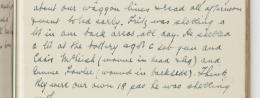 about our waggon lines & read all afternoon
turned to bed early. Fritz was shelling a
bit in our back areas all day. He shelled
a bit at the battery aged 6 set gun and
Cain McLeish (wound in head & leg) and
(wound in backside). Thank
they were our own 18 pdr he was shelling
with